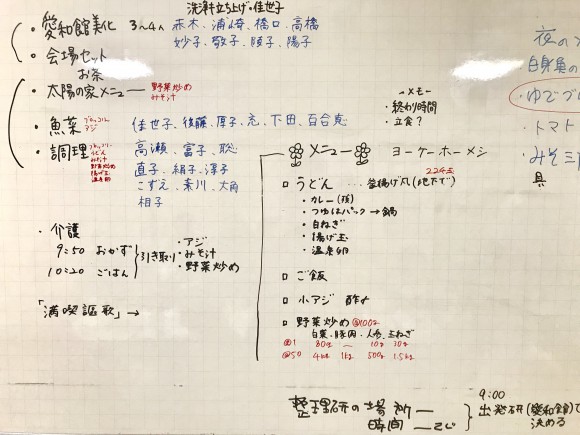 洗浄立ち上げ・佳世子
・愛和館美化 3人4人 赤木、浦崎、橋口、高橋
妙子、敬子、陵子、陽子
・会場セット
お茶
・太陽の家メニュー 野菜炒め
みそ汁
・魚菜 アジ 佳世子、後藤、厚子、克、下田、百合恵
・調理 うどん みそ汁 野菜炒め 揚げ玉 温泉卵
高瀬、富子、聡
直子、絹子、澪子
こずえ、来川、大角
相子
メモ
・終わり時間
・立食?
夜の
自身の
・ゆでづ
・トマト
・みそ
具
メニュー ヨーケーホーメシ
224玉
うどん … 釜揚げ丸(地たで)
・カレー(抜)
・つゆはパック→鍋
・白ねぎ
・揚げ玉
・温泉卵
ご飯
小アジ 酢〆
野菜炒め @100g
白菜、豚肉、人参、玉ねぎ
@1 80g 〜 10g 30g
@50 4kg 1kg 500g 1.5kg
・介護
9:50 おかず
10:20 ごはん
引き取り
・アジ
・みそ汁
・野菜炒め
「満喫謳歌」→
整理研の場所 —
時間 —
9:00
出発研(愛和館)で
決める